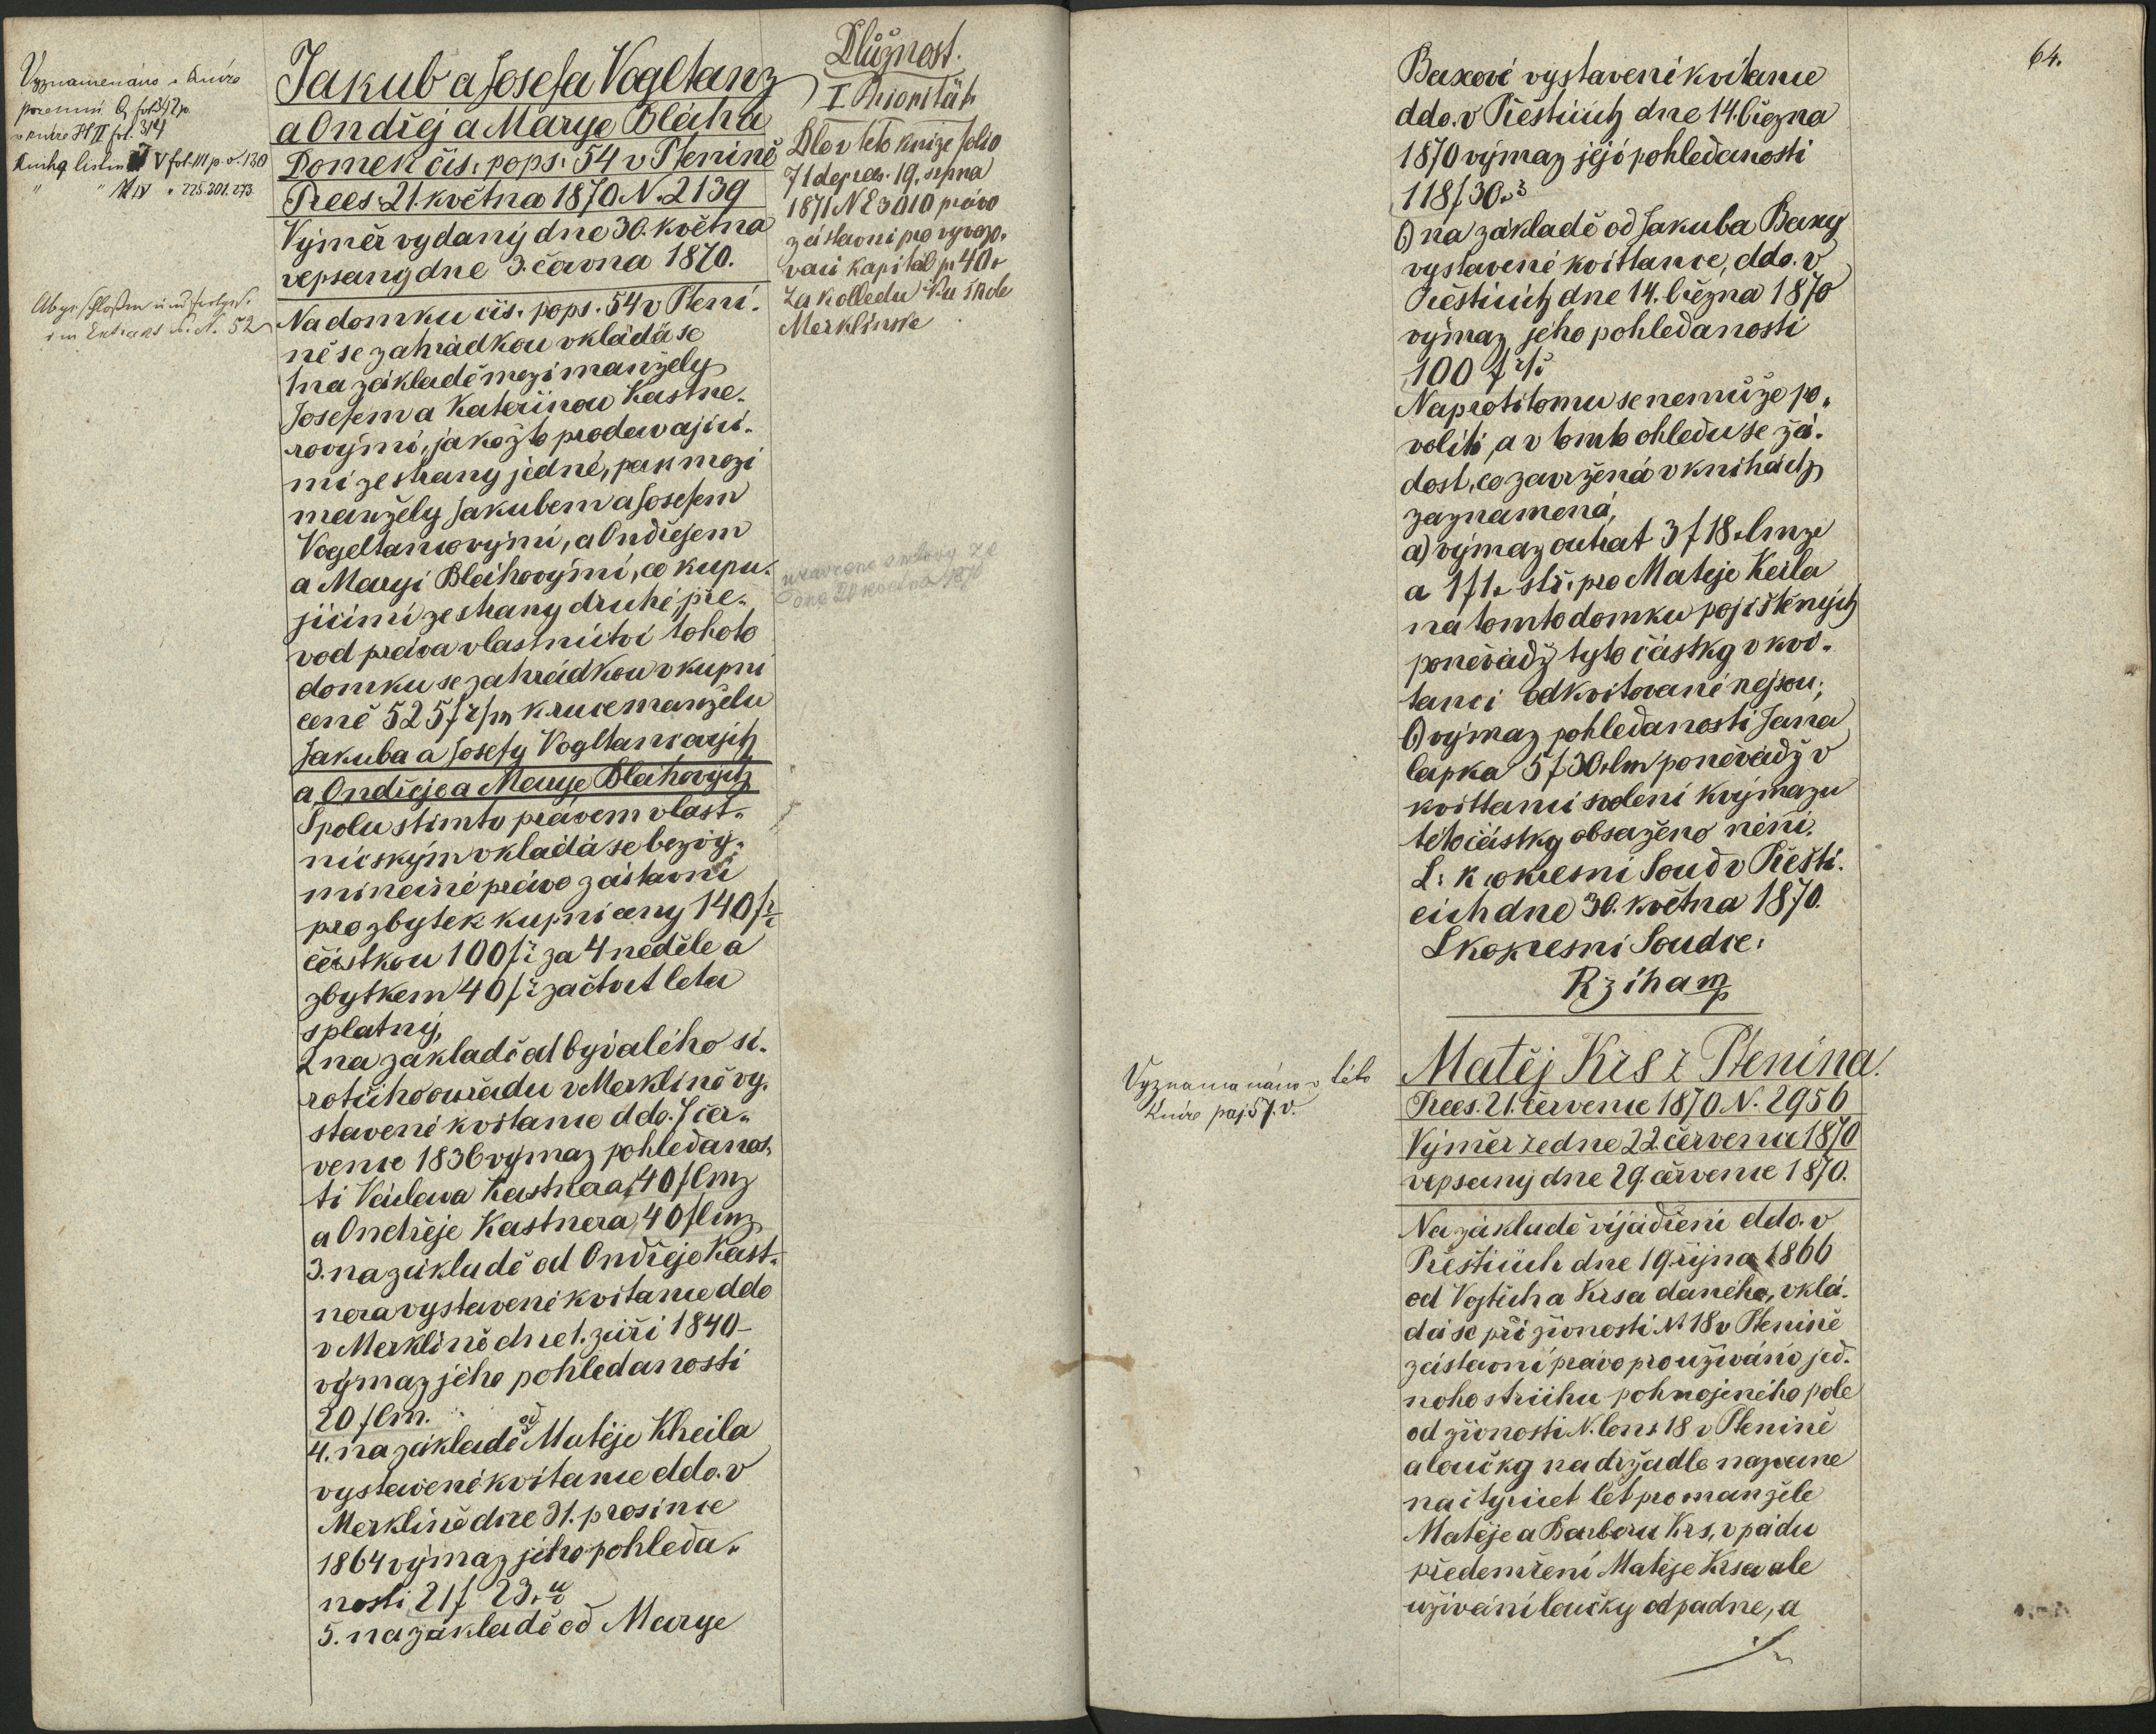 Vyznamenáno v knize
pozemní Q fol. 342 p
v knize H II fol. 314
Kniha listin V fol. 111 p. v. 130
" " IV " 225. 301. 273.
Jakub a Josefa Vogltanz
a Ondřej a Marye Bláha
Domek čis. pops. 54 v Ptenině
Prees. 21. května 1870 N. 2139
Výměr vydaný dne 30. května
vepsaný dne 3. června 1870.
Na domku čis. pops. 54 v Pteni-
ně se zahrádkou vkládá se
1 na základě mezi manžely
Josefem a Kateřinou Kastne-
rovými, jakožto prodávajíci-
mi ze strany jedné, pak mezi
manžely Jakubem a Josefem
Vogeltancovými, a Ondřejem
a Maryi Bláhovými, co kupu-
jícími ze strany druhé, pře-
vod práva vlastnictví tohoto
domku se zahrádkou v kupní
ceně 525 f r/m k ruce manželu
Jakuba a Josefy Vogltancových
a Ondřeje a Marye Bláhových
Spolu s tímto právem vlast-
nickým vkládá se bezvý-
minečné právo zástavní
pro zbytek kupní ceny 140 f rč
částkou 100 f rč za 4 neděle a
zbytkem 40 f rč za čtvrt leta
splatný,
2 na základě od bývalého si-
rotčího ouřadu v Merklíně vy-
stavené kvitance ddo. 7 čer-
vence 1836 výmaz pohledanos-
ti Václava Kastnera 40 f lmz
a Ondřeje Kastnera 40 f lmz
3. na základě od Ondřeje Kast-
nera vystavené kvitance ddo
v Merklíně dne 1. září 1840
výmaz jeho pohledanosti
20 f lm.
4. na základě od Matěje Kheila
vystavené kvitance ddo. v
Merklíně dne 31. prosince
1864 výmaz jeho pohleda-
nosti 21 f 23
5. na základě od Marye
Dlužnost.
I Priorität
Dle v této knize folio
71 de praes. 19. srpna
1871 N E 3010 právo
zástavní pro vyvazo-
vací kapitál pr 40
za kolledu ku škole
Merklínské
uzavřené smlouvy ze
dne 20 května 1870
64.
Baxové vystavené kvitance
ddo. v Přešticích dne 14. března
1870 výmaz její pohledanosti
118 f 30
6) na základě od Jakuba Baxy
vystavené kvittance, ddo. v
Přešticích dne 14. března 1870
výmaz jeho pohledanosti
100 f rč
Naproti tomu se nemůže po-
voliti, a v tomto ohledu se žá-
dost, co zavržená v knihách
zaznamená,
a) výmaz outrat 3 f 18 x lmze
a 1 f 1 x stř. pro Matěje Keila
na tomto domku pojištěných
poněvadž tyto částky v kvi-
tanci odkvitované nejsou;
b) výmaz pohledanosti Jana
lapka 5 f 30 x lm poněvadž v
kvittanci svolení k výmazu
této částky obsaženo není.
C. k. okresní Soud v Přešti-
cích dne 30. května 1870.
C k okresní Soudce:
Rziha mp
Vyznamenáno v této
knize paj 57. v.
Matěj Krs z Ptenina.
Prees. 21. července 1870 N. 2956
Výměr ze dne 22 července 1870
vepsaný dne 29. července 1870.
Na základě vijádření ddo. v
Přešticích dne 19. října 1866
od Vojtěcha Krsa daného, vklá-
dá se při živnosti N 18 v Ptenině
zástavní právo pro užívání jed-
noho strichu pohnojeného pole
od živnosti N. cons 18 v Ptenině
a loučky na držadle nazvané
na čtyřicet let pro manžele
Matěje a Barboru Krs, v pádu
předemření Matěje Krsa ale
užívání loučky odpadne, a